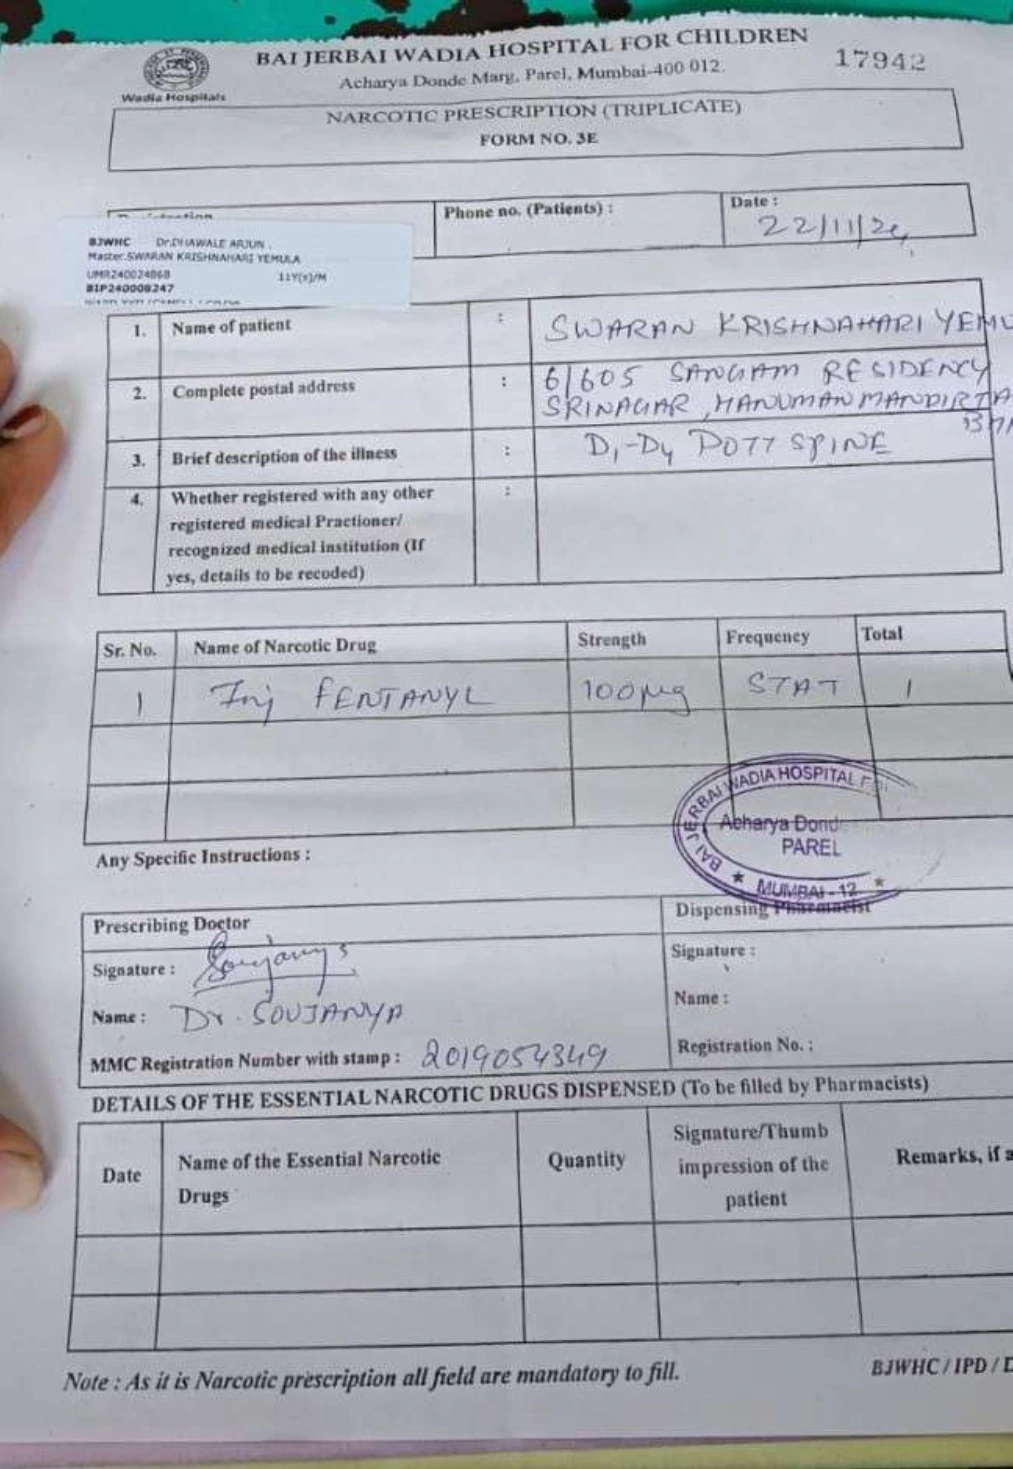 BAI JERBAI WADIA HOSPITAL FOR CHILDREN
17942
Acharya Donde Marg, Parel, Mumbai-400 012.
Wadia Hospitals
NARCOTIC PRESCRIPTION (TRIPLICATE)
FORM NO. 3E
Phone no. (Patients) :
Date :
22/11/24
BJWHC Dr.DHAWALE ARJUN .
Master.SWARAN KRISHNAHARI YEMULA
UMR240024868 11Y(s)/M
BIP240008247
1. Name of patient : SWARAN KRISHNAHARI YEMU
2. Complete postal address : 6/605 SANGAM RESIDENCY
SRINAGAR, HANUMAN MANDIR
3. Brief description of the illness : D1-D4 POTT SPINE
4. Whether registered with any other :
registered medical Practioner/
recognized medical institution (If
yes, details to be recoded)
Sr. No. Name of Narcotic Drug Strength Frequency Total
1 Inj FENTANYL 100µg STAT 1
BAI JERBAI WADIA HOSPITAL
Acharya Dond
PAREL
MUMBAI - 12
Any Specific Instructions :
Prescribing Doctor
Dispensing Pharmacist
Signature : Soujanya
Signature :
Name : Dr. SOUJANYA
Name :
MMC Registration Number with stamp : 2019054349
Registration No. :
DETAILS OF THE ESSENTIAL NARCOTIC DRUGS DISPENSED (To be filled by Pharmacists)
Date Name of the Essential Narcotic Drugs Quantity Signature/Thumb impression of the patient Remarks, if a
Note : As it is Narcotic prescription all field are mandatory to fill.
BJWHC / IPD / D